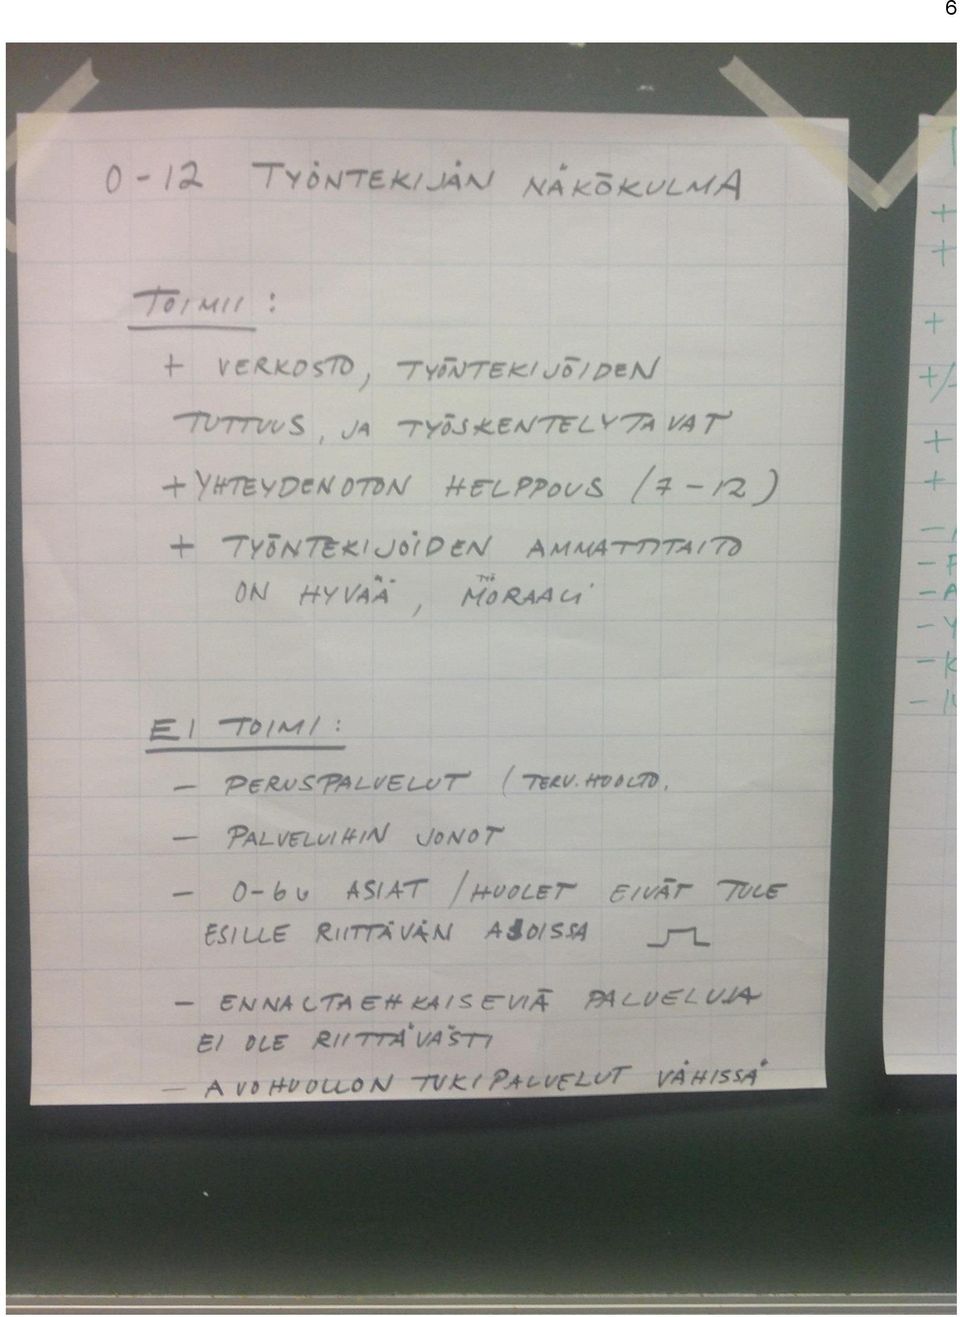 6
0-12 TYÖNTEKIJÄN NÄKÖKULMA
TOIMII:
+ VERKOSTO, TYÖNTEKIJÖIDEN
TUTTUUS, JA TYÖSKENTELYTAVAT
+ YHTEYDENOTON HELPPOUS (7-12)
+ TYÖNTEKIJÖIDEN AMMATTITAITO
ON HYVÄÄ, TYÖ MORAALI
EI TOIMI:
- PERUSPALVELUT (TERV.HUOLTO.
- PALVELUIHIN JONOT
- 0-6 v ASIAT / HUOLET EIVÄT TULE
ESILLE RIITTÄVÄN AJOISSA
- ENNALTAEHKAISEVIÄ PALVELUJA
EI OLE RIITTÄVÄSTI
- AVOHUOLLON TUKIPALVELUT VÄHISSÄ
+
+
+
+/-
+
+
-
- F
- A
- Y
- K
-